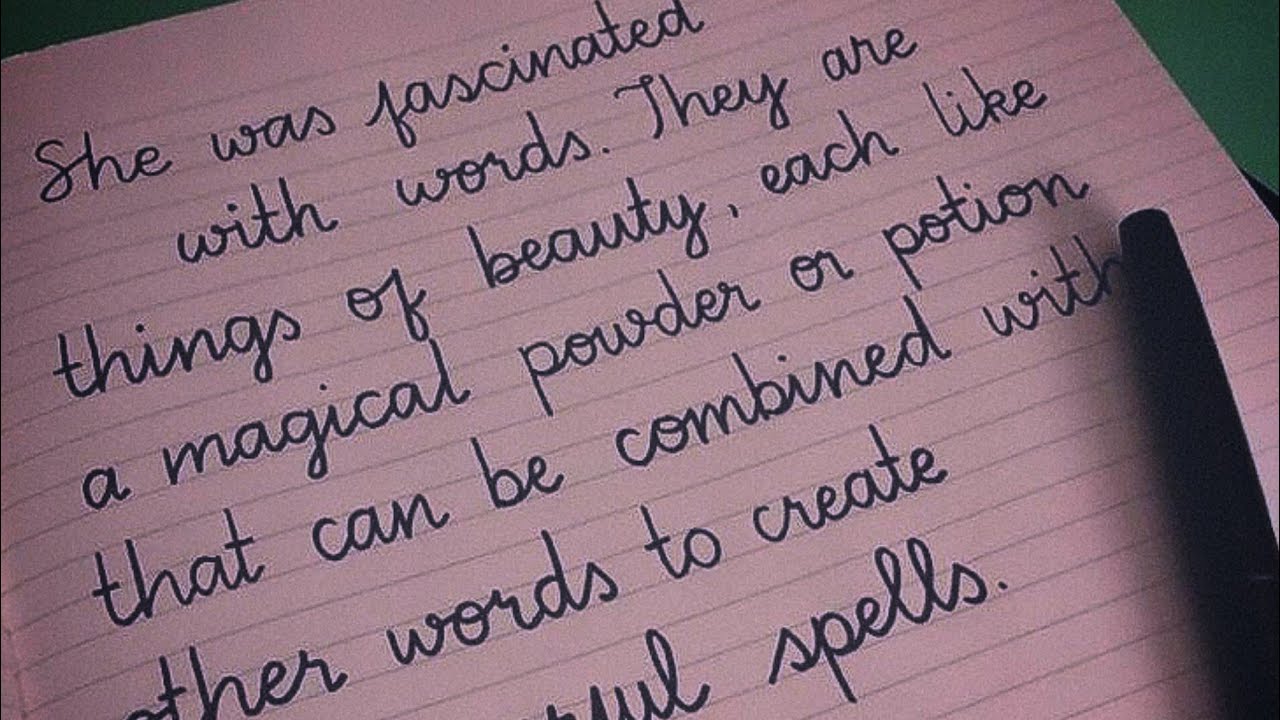 She was fascinated
with words. They are
things of beauty, each like
a magical powder or potion
that can be combined with
other words to create
spells.